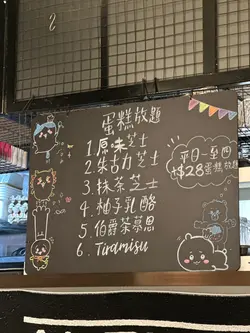 蛋糕放題
1. 原味芝士
2. 朱古力芝士
3. 抹茶芝士
4. 柚子乳酪
5. 伯爵茶慕思
6. Tiramisu
平日一至四
+$28蛋糕放題